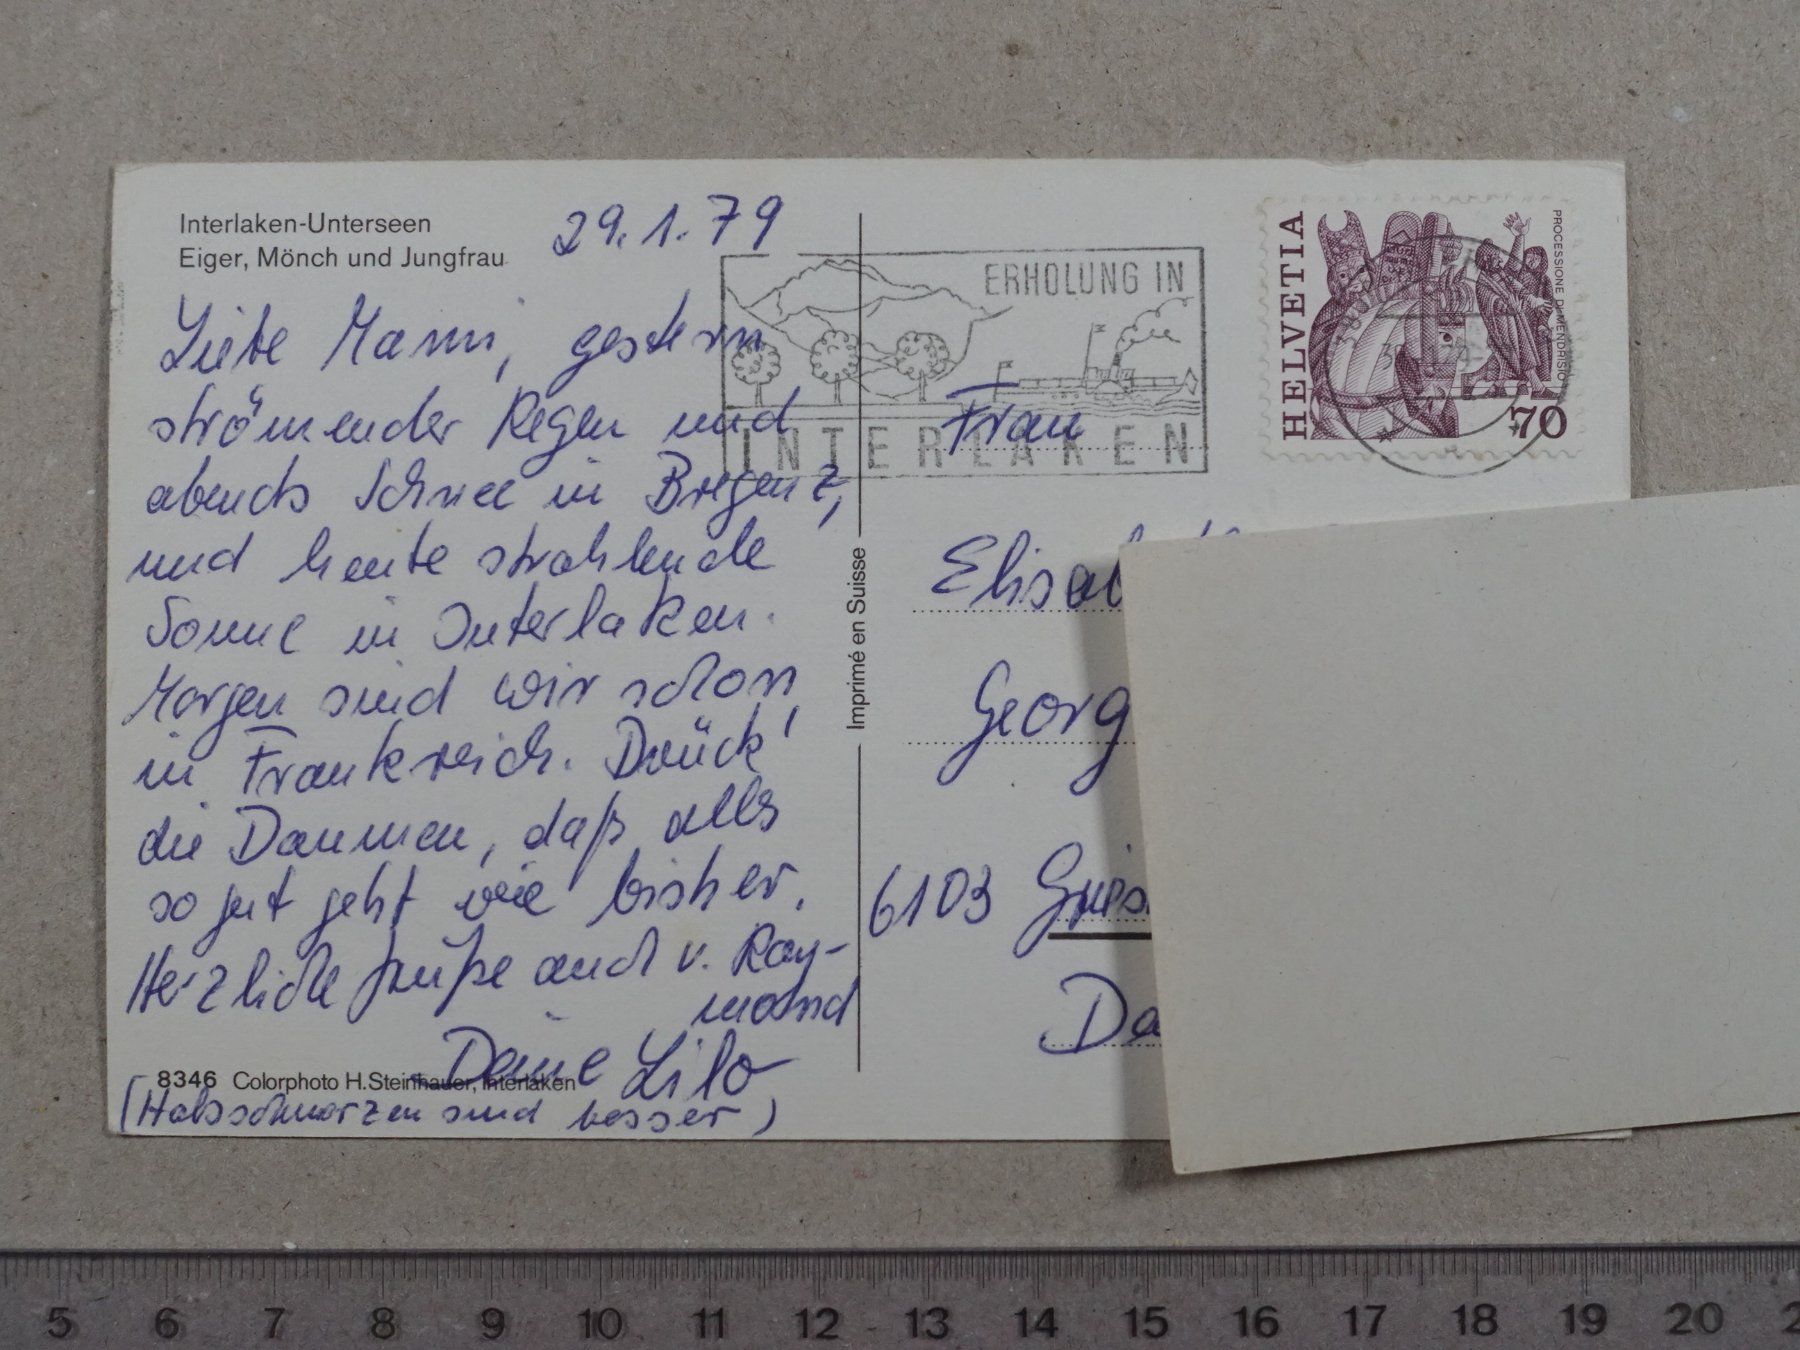 Interlaken-Unterseen
Eiger, Mönch und Jungfrau
29.1.79
Liebe Mami, gestern
strömender Regen und
abends Schnee in Bregenz,
und heute strahlende
Sonne in Interlaken.
Morgen sind wir schon
in Frankreich. Drück'
die Daumen, daß alles
so gut geht wie bisher.
Herzliche Grüße auch v. Ray-
mond
Deine Lilo
8346 Colorphoto H. Steinhauer, Interlaken
(Halsschmerzen sind besser)
Imprimé en Suisse
ERHOLUNG IN
INTERLAKEN
HELVETIA
PROCESSIONE DI MENDRISIO
70
Frau
Georg
6103
5 6 7 8 9 10 11 12 13 14 15 16 17 18 19 20